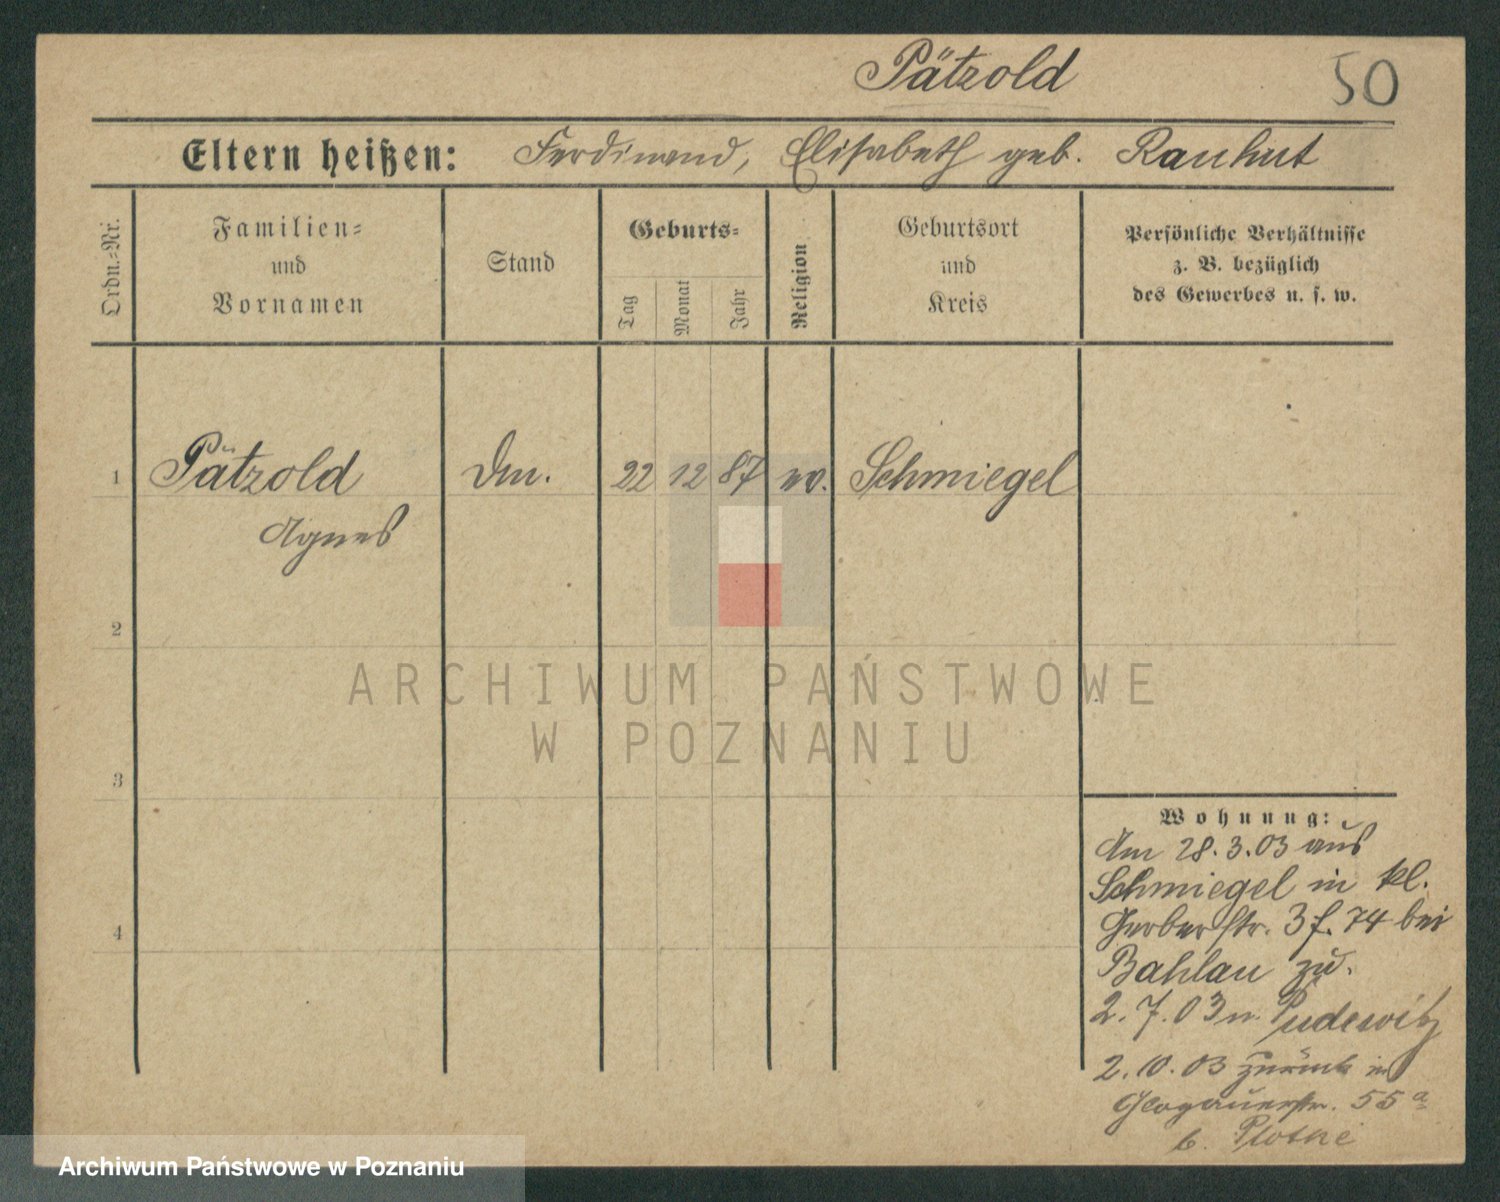 Pätzold
50
Eltern heißen: Ferdinand, Elisabeth geb. Rauhut
Ordn.-Nr.
Familien-
und
Vornamen
Stand
Geburts-
Tag
Monat
Jahr
Religion
Geburtsort
und
Kreis
Persönliche Verhältnisse
z. B. bezüglich
des Gewerbes u. s. w.
1 Pätzold 22 12 87 Schmiegel
Agnes
2
3
4
ARCHIWUM PAŃSTWOWE
W POZNANIU
Wohnung:
Am 28.3.03 aus
Schmiegel in kl.
Gerberstr. 3 f. 74 bei
Bahlau zu.
2.7.03 n. Pudewitz
2.10.03 zurück in
Glogauerstr. 55a
b. Plothe
Archiwum Państwowe w Poznaniu